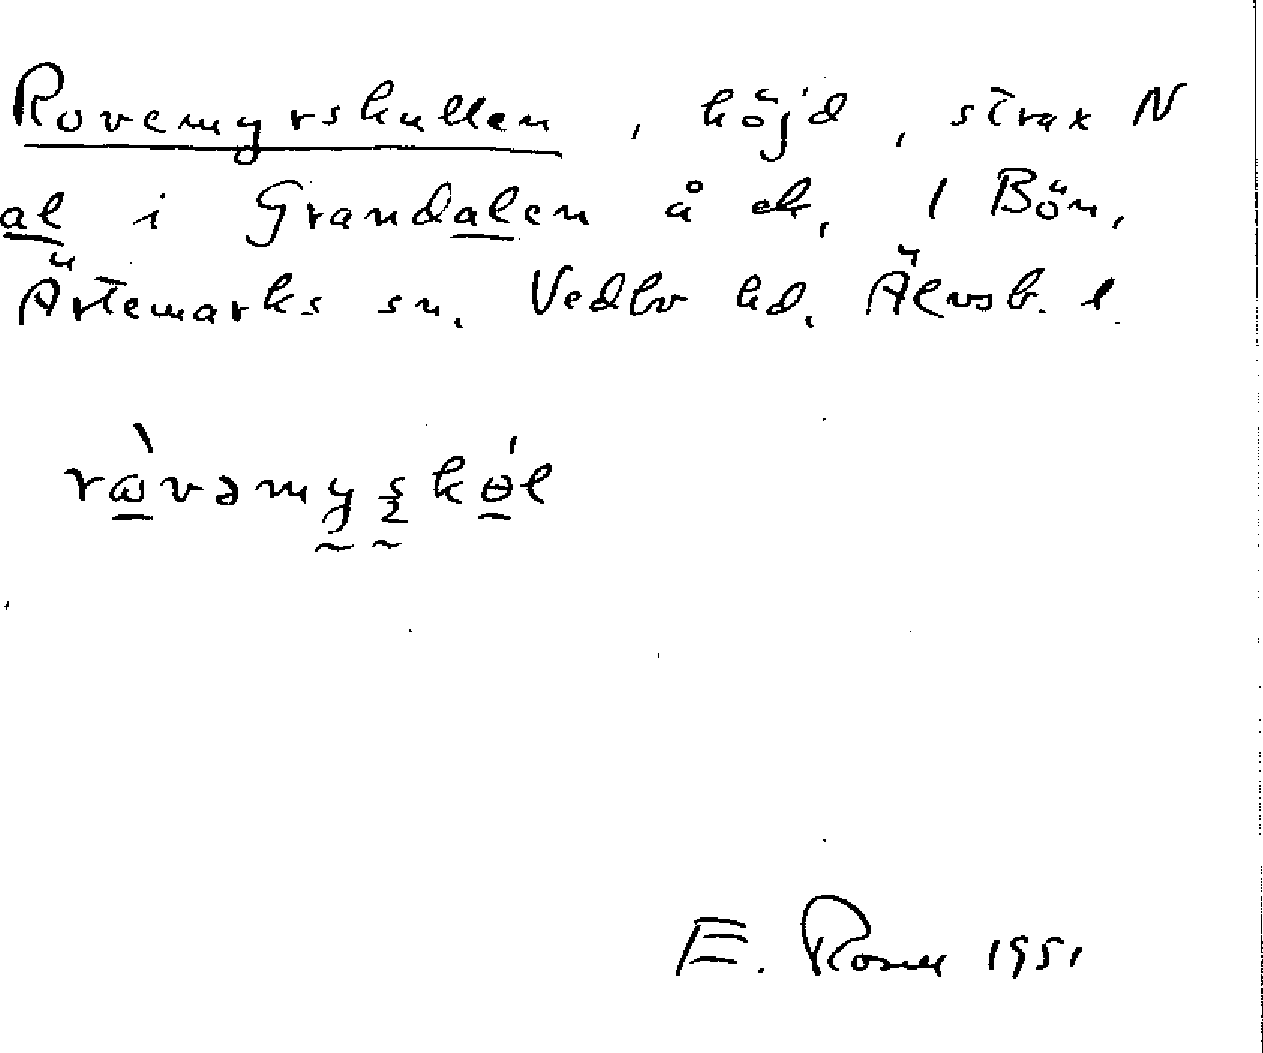 Rovemyrskullen, höjd, strax N
al i Grandalen å ek, 1 Bön,
Ärtemarks sn. Vedbo hd. Älvsb. l.
E. 1951